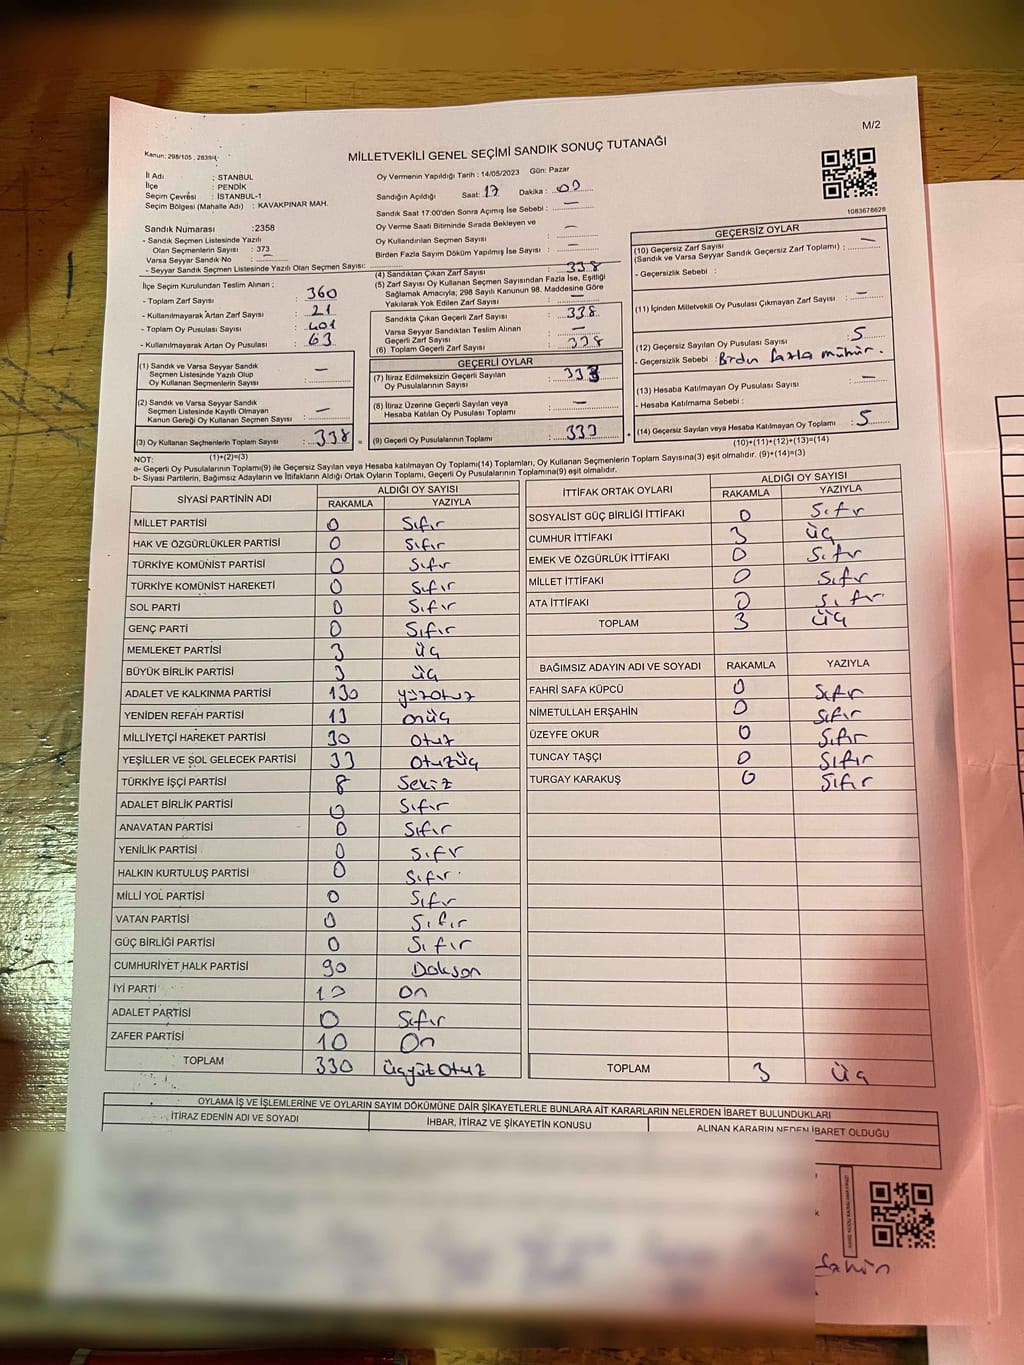 M/2
Kanun: 298/105 , 2839/4
MİLLETVEKİLİ GENEL SEÇİMİ SANDIK SONUÇ TUTANAĞI
1083678628
İl Adı : STANBUL
İlçe : PENDİK
Seçim Çevresi : İSTANBUL-1
Seçim Bölgesi (Mahalle Adı) : KAVAKPINAR MAH.
Sandık Numarası :2358
- Sandık Seçmen Listesinde Yazılı
Olan Seçmenlerin Sayısı : 373
Varsa Seyyar Sandık No : —
- Seyyar Sandık Seçmen Listesinde Yazılı Olan Seçmen Sayısı:
İlçe Seçim Kurulundan Teslim Alınan ;
- Toplam Zarf Sayısı : 360
- Kullanılmayarak Artan Zarf Sayısı : 21
- Toplam Oy Pusulası Sayısı : 401
- Kullanılmayarak Artan Oy Pusulası : 63
(1) Sandık ve Varsa Seyyar Sandık
Seçmen Listesinde Yazılı Olup
Oy Kullanan Seçmenlerin Sayısı : —
(2) Sandık ve Varsa Seyyar Sandık
Seçmen Listesinde Kayıtlı Olmayan
Kanun Gereği Oy Kullanan Seçmen Sayısı : —
(3) Oy Kullanan Seçmenlerin Toplam Sayısı : 338 =
(1)+(2)=(3)
Oy Vermenin Yapıldığı Tarih : 14/05/2023 Gün: Pazar
Sandığın Açıldığı Saat: 17 Dakika : 00
Sandık Saat 17:00'den Sonra Açımış İse Sebebi : —
Oy Verme Saati Bitiminde Sırada Bekleyen ve
Oy Kullandırılan Seçmen Sayısı : —
Birden Fazla Sayım Döküm Yapılmış İse Sayısı : —
(4) Sandıktan Çıkan Zarf Sayısı : 338
(5) Zarf Sayısı Oy Kullanan Seçmen Sayısından Fazla İse, Eşitliği
Sağlamak Amacıyla; 298 Sayılı Kanunun 98. Maddesine Göre
Yakılarak Yok Edilen Zarf Sayısı : —
Sandıkta Çıkan Geçerli Zarf Sayısı : 338
Varsa Seyyar Sandıktan Teslim Alınan
Geçerli Zarf Sayısı : —
(6) Toplam Geçerli Zarf Sayısı : 338
GEÇERLİ OYLAR
(7) İtiraz Edilmeksizin Geçerli Sayılan
Oy Pusulalarının Sayısı : 333
(8) İtiraz Üzerine Geçerli Sayılan veya
Hesaba Katılan Oy Pusulası Toplamı : —
(9) Geçerli Oy Pusulalarının Toplamı : 333
GEÇERSİZ OYLAR
(10) Geçersiz Zarf Sayısı
(Sandık ve Varsa Seyyar Sandık Geçersiz Zarf Toplamı) : —
- Geçersizlik Sebebi :
(11) İçinden Milletvekili Oy Pusulası Çıkmayan Zarf Sayısı : —
(12) Geçersiz Sayılan Oy Pusulası Sayısı : 5
- Geçersizlik Sebebi : Birden fazla mühür.
(13) Hesaba Katılmayan Oy Pusulası Sayısı : —
- Hesaba Katılmama Sebebi :
(14) Geçersiz Sayılan veya Hesaba Katılmayan Oy Toplamı : 5
(10)+(11)+(12)+(13)=(14)
NOT:
a- Geçerli Oy Pusulalarının Toplamı(9) ile Geçersiz Sayılan veya Hesaba katılmayan Oy Toplamı(14) Toplamları, Oy Kullanan Seçmenlerin Toplam Sayısına(3) eşit olmalıdır. (9)+(14)=(3)
b- Siyasi Partilerin, Bağımsız Adayların ve İttifakların Aldığı Ortak Oyların Toplamı, Geçerli Oy Pusulalarının Toplamına(9) eşit olmalıdır.
SİYASİ PARTİNİN ADI ALDIĞI OY SAYISI
RAKAMLA YAZIYLA
MİLLET PARTİSİ 0 Sıfır
HAK VE ÖZGÜRLÜKLER PARTİSİ 0 Sıfır
TÜRKİYE KOMÜNİST PARTİSİ 0 Sıfır
TÜRKİYE KOMÜNİST HAREKETİ 0 Sıfır
SOL PARTİ 0 Sıfır
GENÇ PARTİ 0 Sıfır
MEMLEKET PARTİSİ 3 üç
BÜYÜK BİRLİK PARTİSİ 3 üç
ADALET VE KALKINMA PARTİSİ 130 yüzotuz
YENİDEN REFAH PARTİSİ 13 onüç
MİLLİYETÇİ HAREKET PARTİSİ 30 otuz
YEŞİLLER VE SOL GELECEK PARTİSİ 33 otuzüç
TÜRKİYE İŞÇİ PARTİSİ 8 Sekiz
ADALET BİRLİK PARTİSİ 0 Sıfır
ANAVATAN PARTİSİ 0 Sıfır
YENİLİK PARTİSİ 0 Sıfır
HALKIN KURTULUŞ PARTİSİ 0 Sıfır
MİLLİ YOL PARTİSİ 0 Sıfır
VATAN PARTİSİ 0 Sıfır
GÜÇ BİRLİĞİ PARTİSİ 0 Sıfır
CUMHURİYET HALK PARTİSİ 90 Doksan
İYİ PARTİ 10 On
ADALET PARTİSİ 0 Sıfır
ZAFER PARTİSİ 10 On
TOPLAM 330 üçyüzotuz
İTTİFAK ORTAK OYLARI ALDIĞI OY SAYISI
RAKAMLA YAZIYLA
SOSYALİST GÜÇ BİRLİĞİ İTTİFAKI 0 Sıfır
CUMHUR İTTİFAKI 3 üç
EMEK VE ÖZGÜRLÜK İTTİFAKI 0 Sıfır
MİLLET İTTİFAKI 0 Sıfır
ATA İTTİFAKI 0 Sıfır
TOPLAM 3 üç
BAĞIMSIZ ADAYIN ADI VE SOYADI RAKAMLA YAZIYLA
FAHRİ SAFA KÜPCÜ 0 Sıfır
NİMETULLAH ERŞAHİN 0 Sıfır
ÜZEYFE OKUR 0 Sıfır
TUNCAY TAŞÇI 0 Sıfır
TURGAY KARAKUŞ 0 Sıfır
TOPLAM 3 üç
OYLAMA İŞ VE İŞLEMLERİNE VE OYLARIN SAYIM DÖKÜMÜNE DAİR ŞİKAYETLERLE BUNLARA AİT KARARLARIN NELERDEN İBARET BULUNDUKLARI
İTİRAZ EDENİN ADI VE SOYADI İHBAR, İTİRAZ VE ŞİKAYETİN KONUSU ALINAN KARARIN NEDEN İBARET OLDUĞU